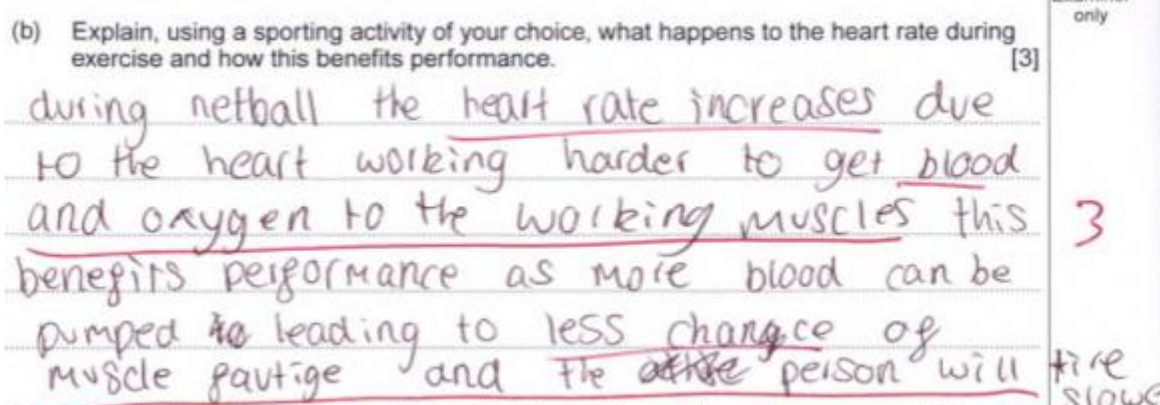 only
(b) Explain, using a sporting activity of your choice, what happens to the heart rate during
exercise and how this benefits performance. [3]
during netball the heart rate increases due
to the heart working harder to get blood
and oxygen to the working muscles this 3
benefits performance as more blood can be
pumped leading to less changce of
muscle fautige and the person will tire
slowe